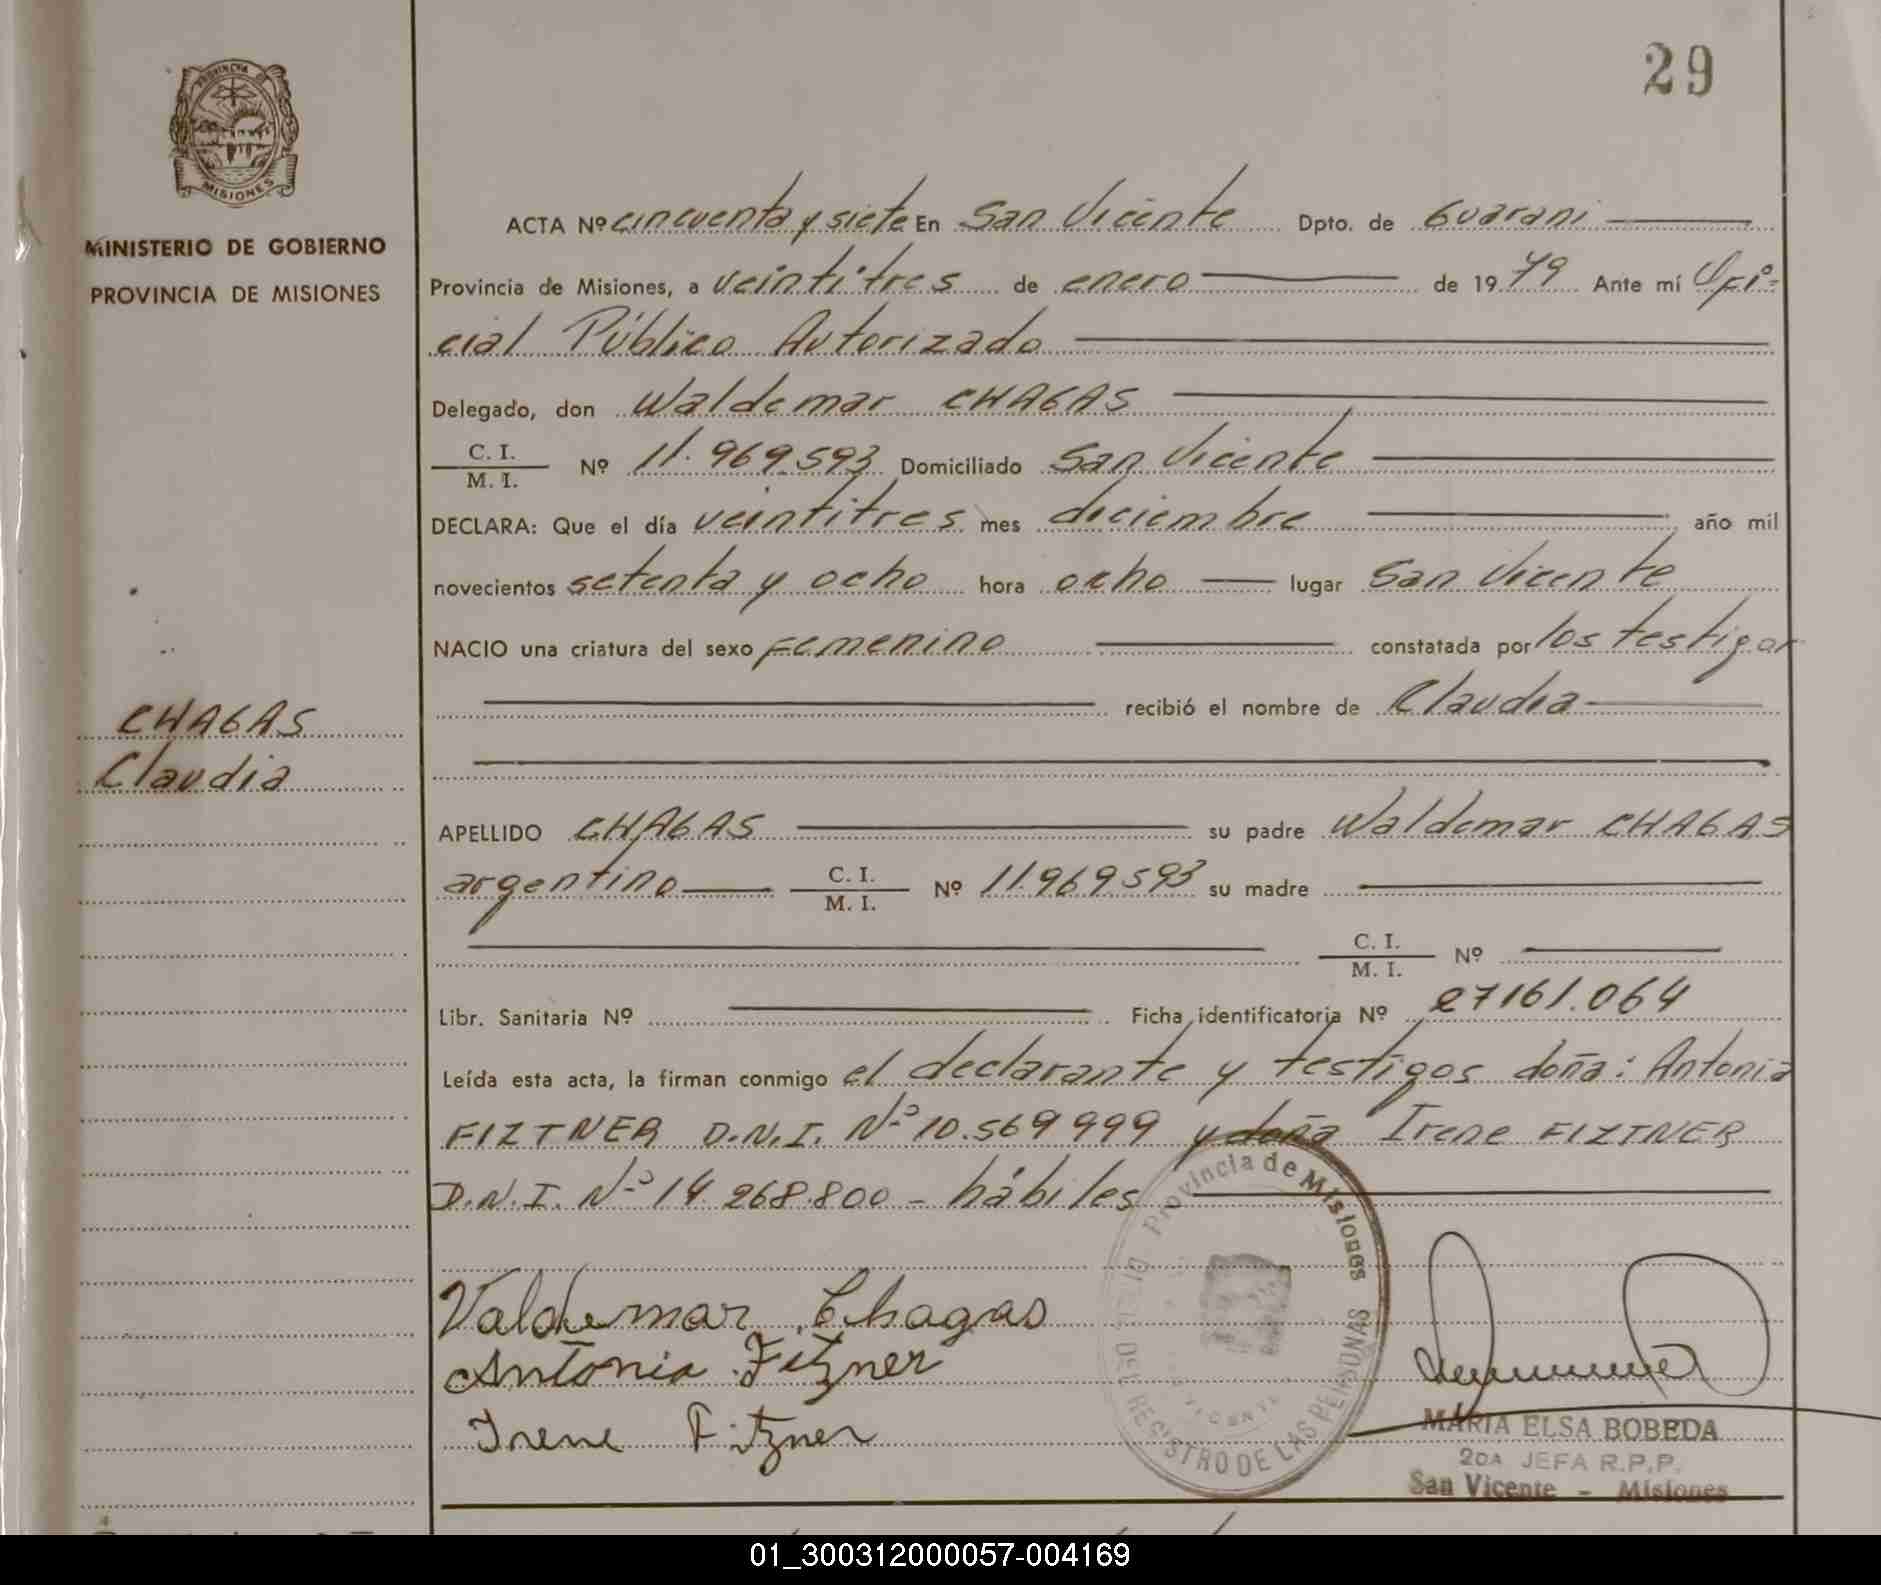 29
PROVINCIA DE
MISIONES
MINISTERIO DE GOBIERNO
PROVINCIA DE MISIONES
CHAGAS
Claudia
ACTA Nº cincuenta y siete En San Vicente Dpto. de Guarani
Provincia de Misiones, a veintitres de enero de 1979 Ante mí Ofi-
cial Público Autorizado
Delegado, don Waldemar CHAGAS
C. I.
M. I. Nº 11.969.593 Domiciliado San Vicente
DECLARA: Que el día veintitres mes diciembre año mil
novecientos setenta y ocho hora ocho lugar San Vicente
NACIO una criatura del sexo femenino constatada por los testigos
recibió el nombre de Claudia
APELLIDO CHAGAS su padre Waldemar CHAGAS
argentino C. I.
M. I. Nº 11.969.593 su madre
C. I.
M. I. Nº
Libr. Sanitaria Nº Ficha identificatoria Nº 27161.064
Leída esta acta, la firman conmigo el declarante y testigos doña: Antonia
FIZTNER D.N.I. Nº 10.569.999 y doña Irene FIZTNER
D.N.I. Nº 14.268.800 - hábiles
Provincia de Misiones
DEL REGISTRO DE LAS PERSONAS
VICENTE
Valdemar Chagas
Antonia Fitzner
Irene Fitzner
MARIA ELSA BOBEDA
2DA JEFA R.P.P.
San Vicente - Misiones
01_300312000057-004169